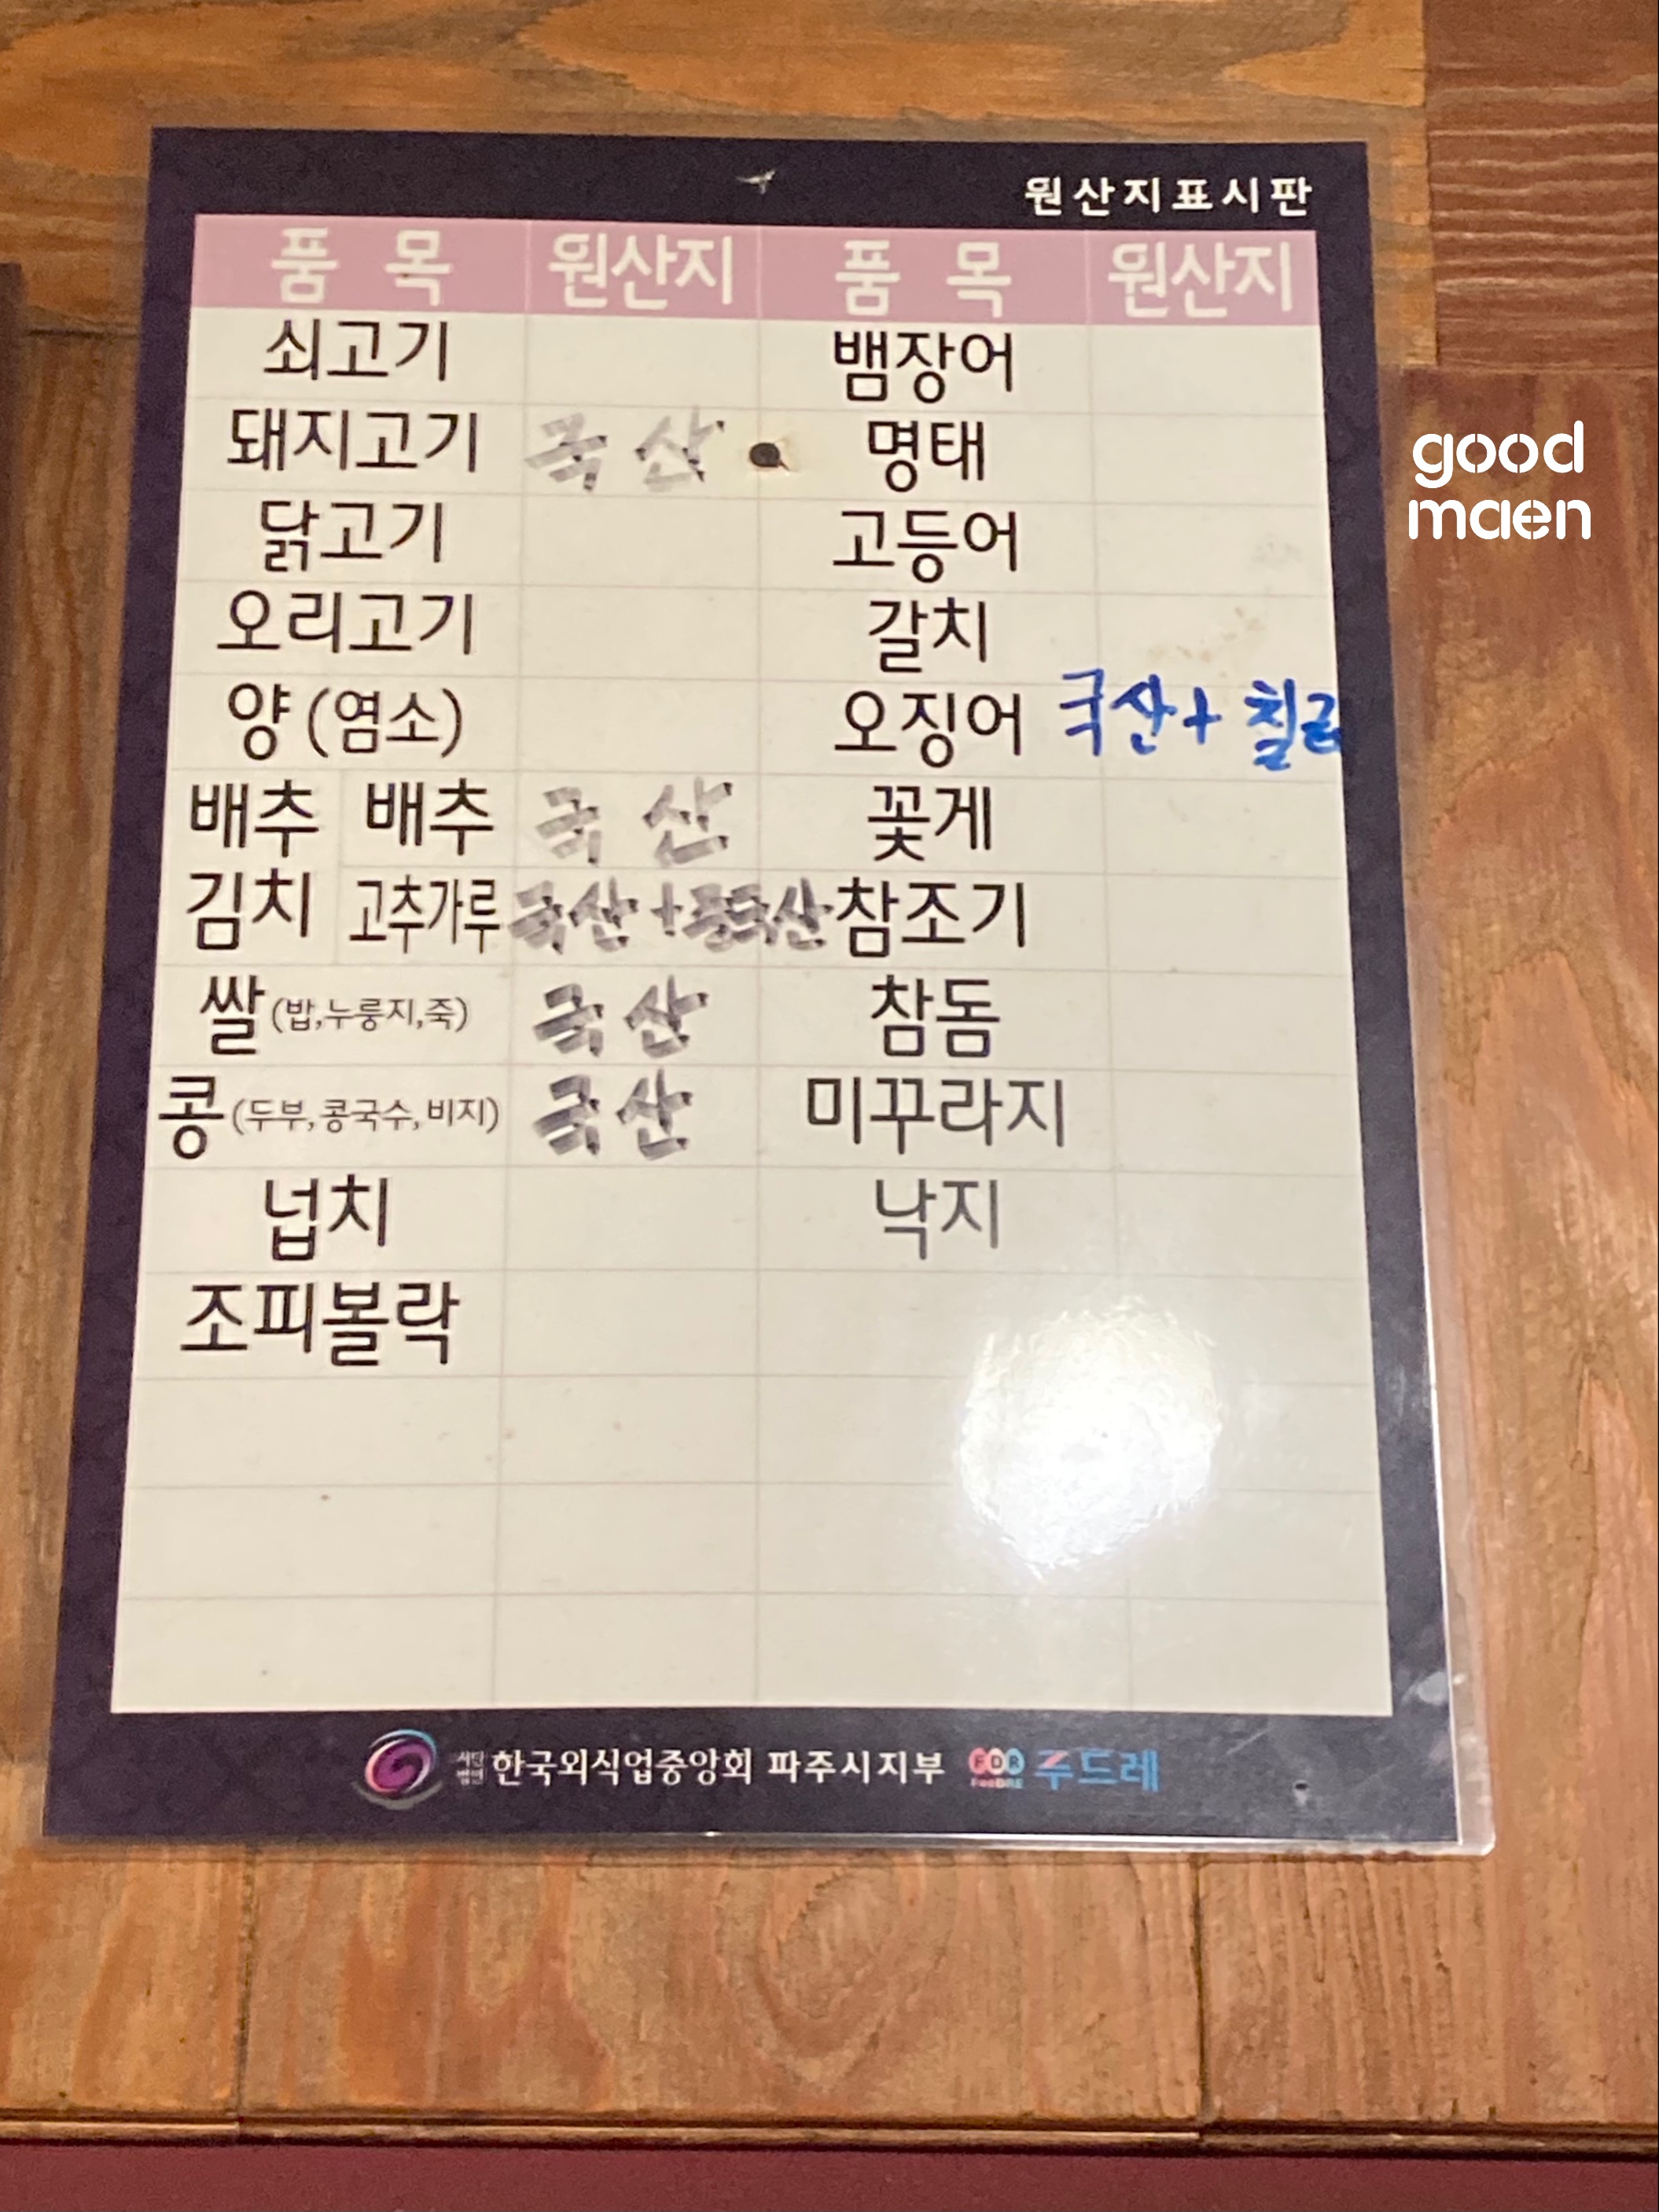 원산지표시판
품 목 원산지 품 목 원산지
쇠고기 뱀장어
돼지고기 국산 명태
닭고기 고등어
오리고기 갈치
양 (염소) 오징어 국산+칠레
배추 배추 국산 꽃게
김치 고추가루 국산+중국산 참조기
쌀(밥,누룽지,죽) 국산 참돔
콩(두부,콩국수,비지) 국산 미꾸라지
넙치 낙지
조피볼락
사단법인 한국외식업중앙회 파주시지부 FDR FooDRE 푸드레
good
maen